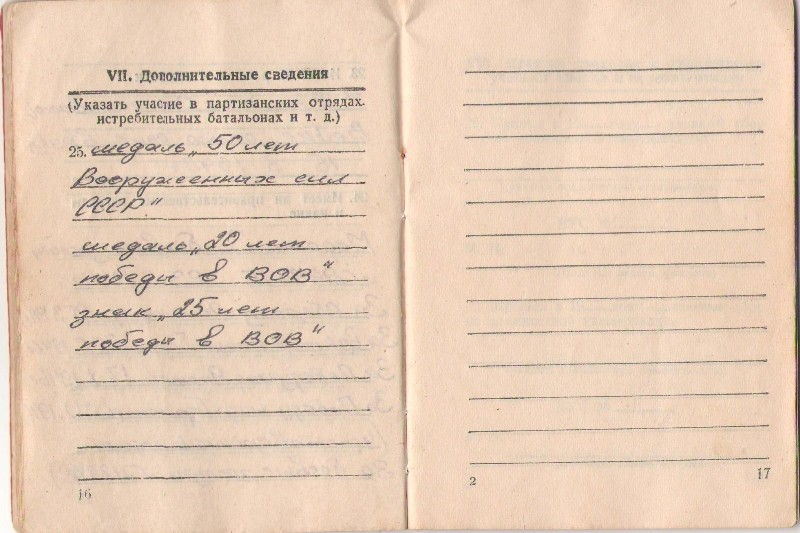 VII. Дополнительные сведения
(Указать участие в партизанских отрядах,
истребительных батальонах и т. д.)
25. медаль „50 лет
Вооруженных сил
СССР."
медаль „20 лет
победы в ВОВ"
знак „25 лет
победы в ВОВ"
16
2
17